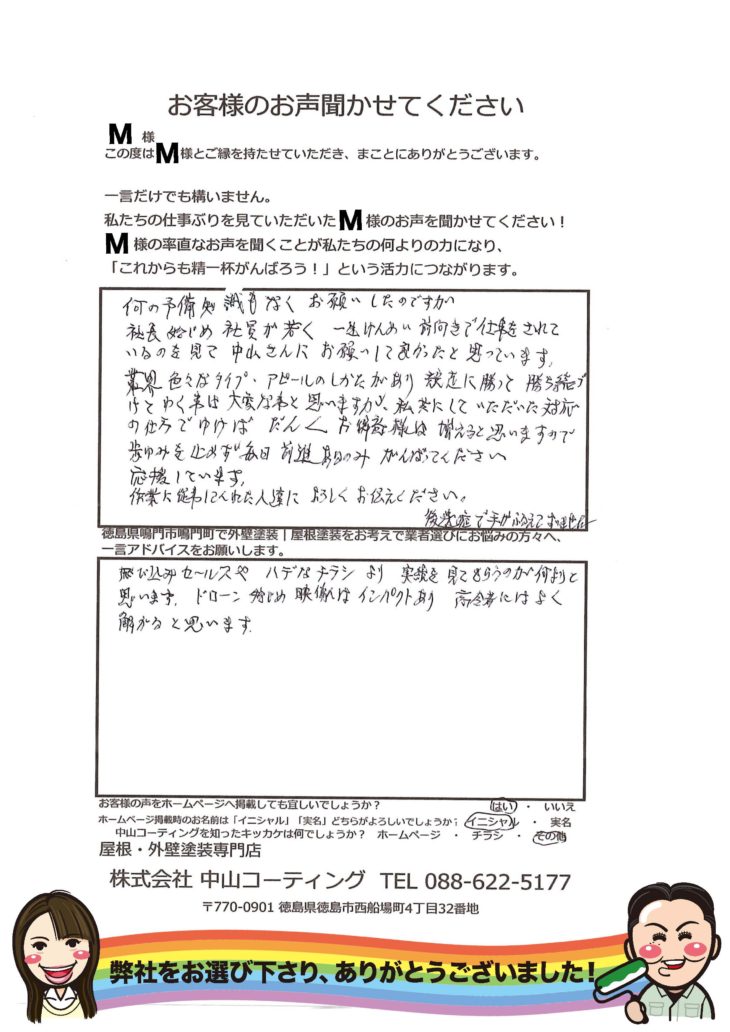 お客様のお声聞かせてください
M 様
この度はM様とご縁を持たせていただき、まことにありがとうございます。
一言だけでも構いません。
私たちの仕事ぶりを見ていただいたM様のお声を聞かせてください！
M様の率直なお声を聞くことが私たちの何よりの力になり、
「これからも精一杯がんばろう！」という活力につながります。
何の予備知識もなく お願いしたのですが
社長始じめ 社員が若く 一生けんめい 前向きで仕事をされて
いるのを見て 中山さんに お願いして良かったと思っています。
業界 色々なタイプ・アピールのしかたがあり 競走に勝って 勝ち続
けてゆく事は 大変な事と思いますが、私共にしていただいた対応
の仕方でゆけば だんくお得意様は増えると思いますので
歩ゆみを止めず毎日 前進あるのみ がんばってください
応援しています。
作業に従事してくれた人達に よろしくお伝えください。
後遺症で手がふるえて
徳島県鳴門市鳴門町で外壁塗装｜屋根塗装をお考えで業者選びにお悩みの方々へ、
一言アドバイスをお願いします。
飛び込みセールスや ハデなチラシ より 実績を見てもらうのが何よりと
思います。ドローン始じめ 映像はインパクトあり 高令者にはよく
解かると思います。
お客様の声をホームページへ掲載しても宜しいでしょうか？ はい ・ いいえ
ホームページ掲載時のお名前は「イニシャル」「実名」どちらがよろしいでしょうか？ イニシャル ・ 実名
中山コーティングを知ったキッカケは何でしょうか？ ホームページ ・ チラシ ・ その他
屋根・外壁塗装専門店
株式会社 中山コーティング TEL 088-622-5177
〒770-0901 徳島県徳島市西船場町4丁目32番地
弊社をお選び下さり、ありがとうございました！